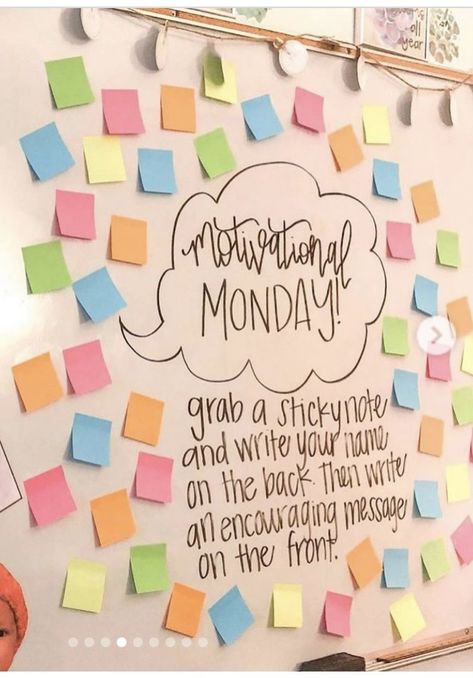 all year
motivational
MONDAY!
grab a stickynote
and write your name
on the back. Then write
an encouraging message
on the front.